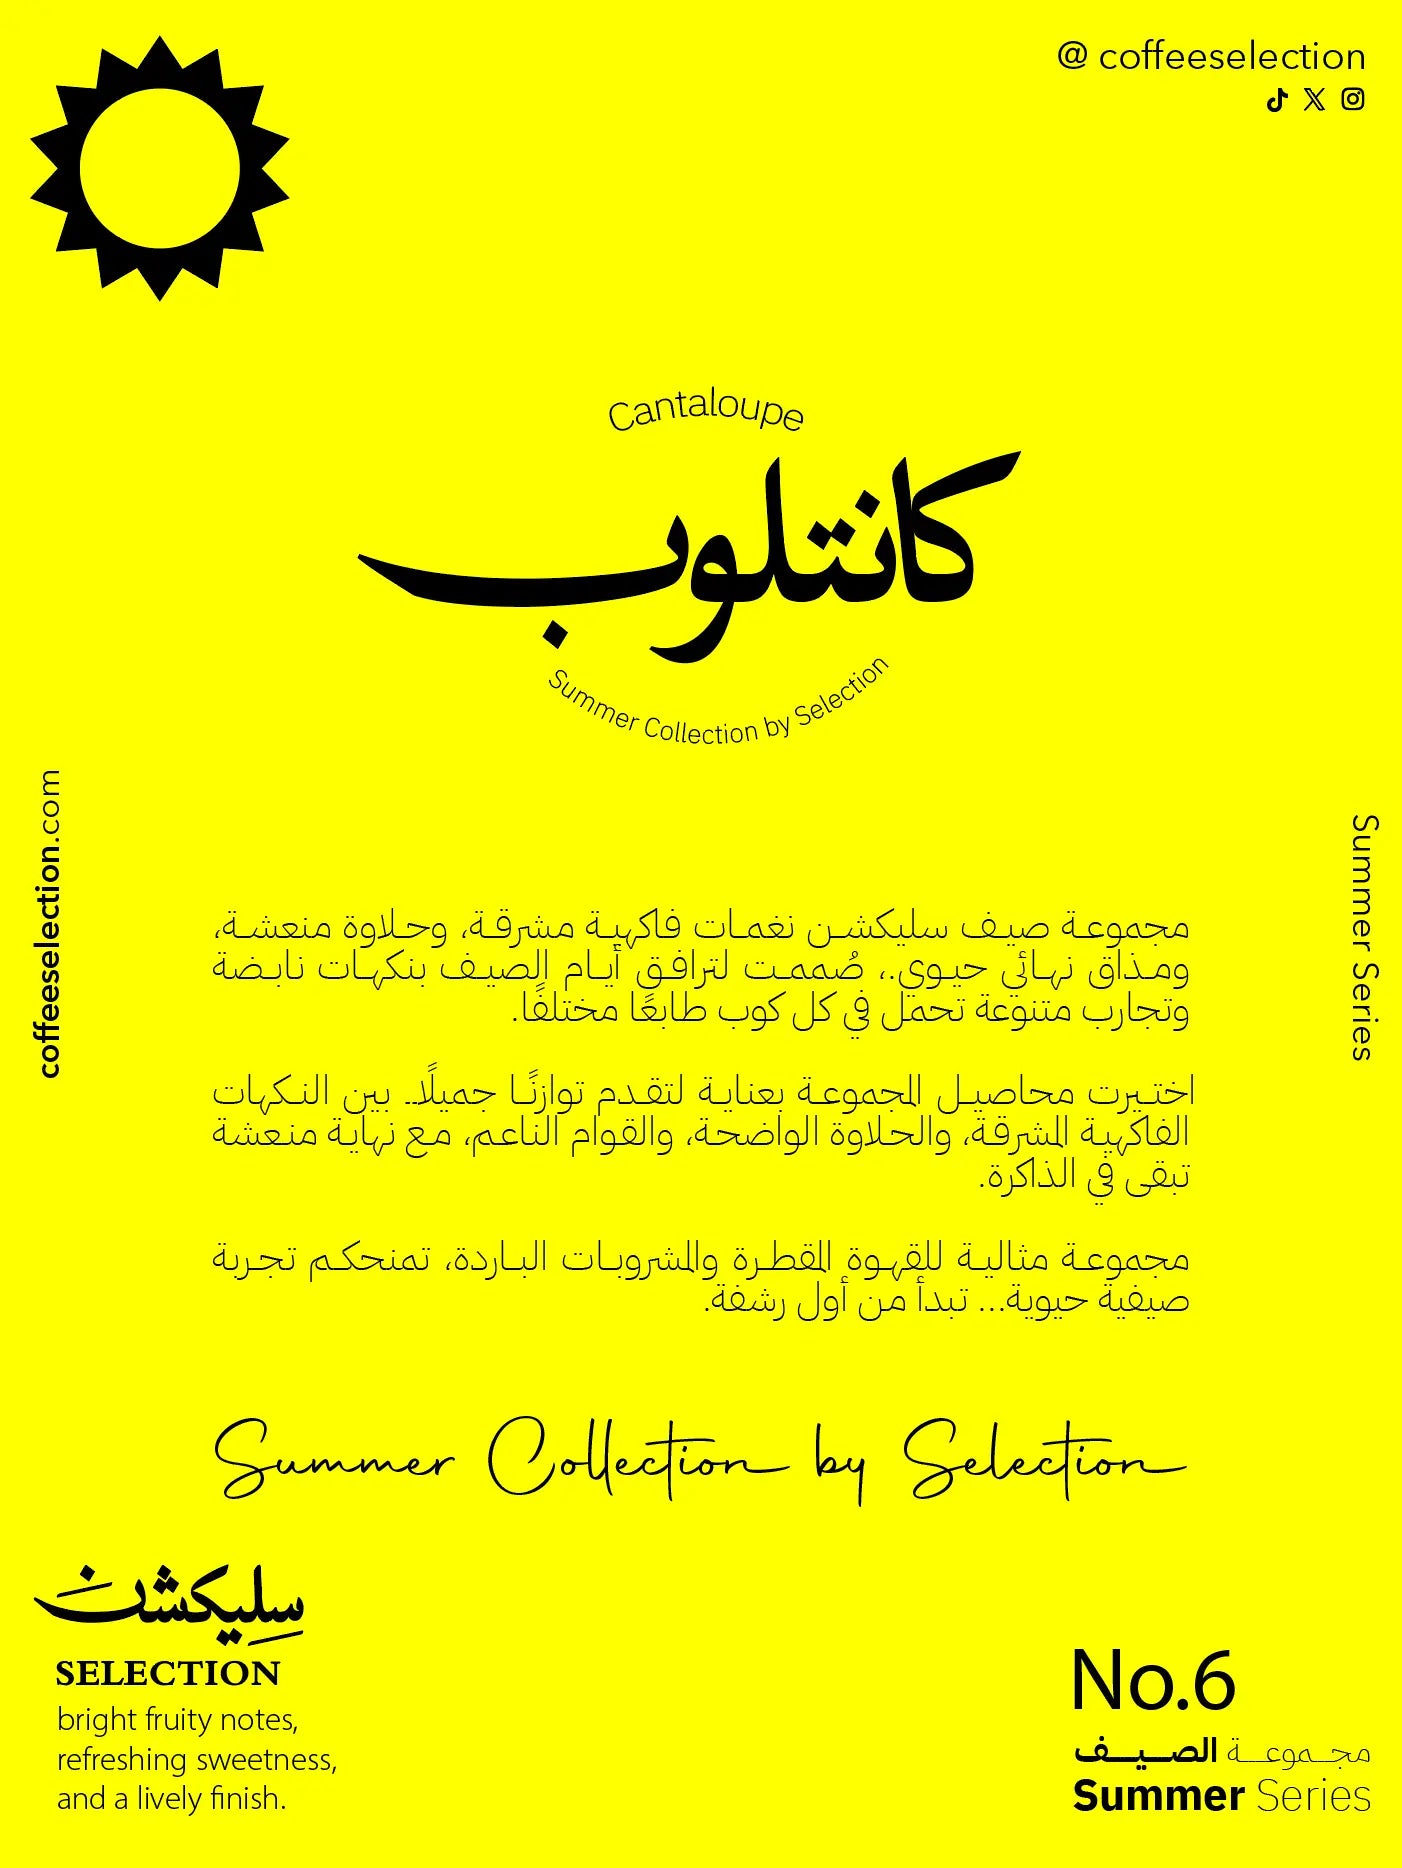 @ coffeeselection
Cantaloupe
كانتلوب
Summer Collection by Selection
coffeeselection.com
Summer Series
مجموعة صيف سليكشن نغمات فاكهية مشرقة، وحلاوة منعشة،
ومذاق نهائي حيوي.، صُممت لترافق أيام الصيف بنكهات نابضة
وتجارب متنوعة تحمل في كل كوب طابعًا مختلفًا.
اختيرت محاصيل المجموعة بعناية لتقدم توازنًا جميلًا.. بين النكهات
الفاكهية المشرقة، والحلاوة الواضحة، والقوام الناعم، مع نهاية منعشة
تبقى في الذاكرة.
مجموعة مثالية للقهوة المقطرة والمشروبات الباردة، تمنحكم تجربة
صيفية حيوية... تبدأ من أول رشفة.
Summer Collection by Selection
سِليكشنَ
SELECTION
bright fruity notes,
refreshing sweetness,
and a lively finish.
No.6
مجموعة الصيف
Summer Series